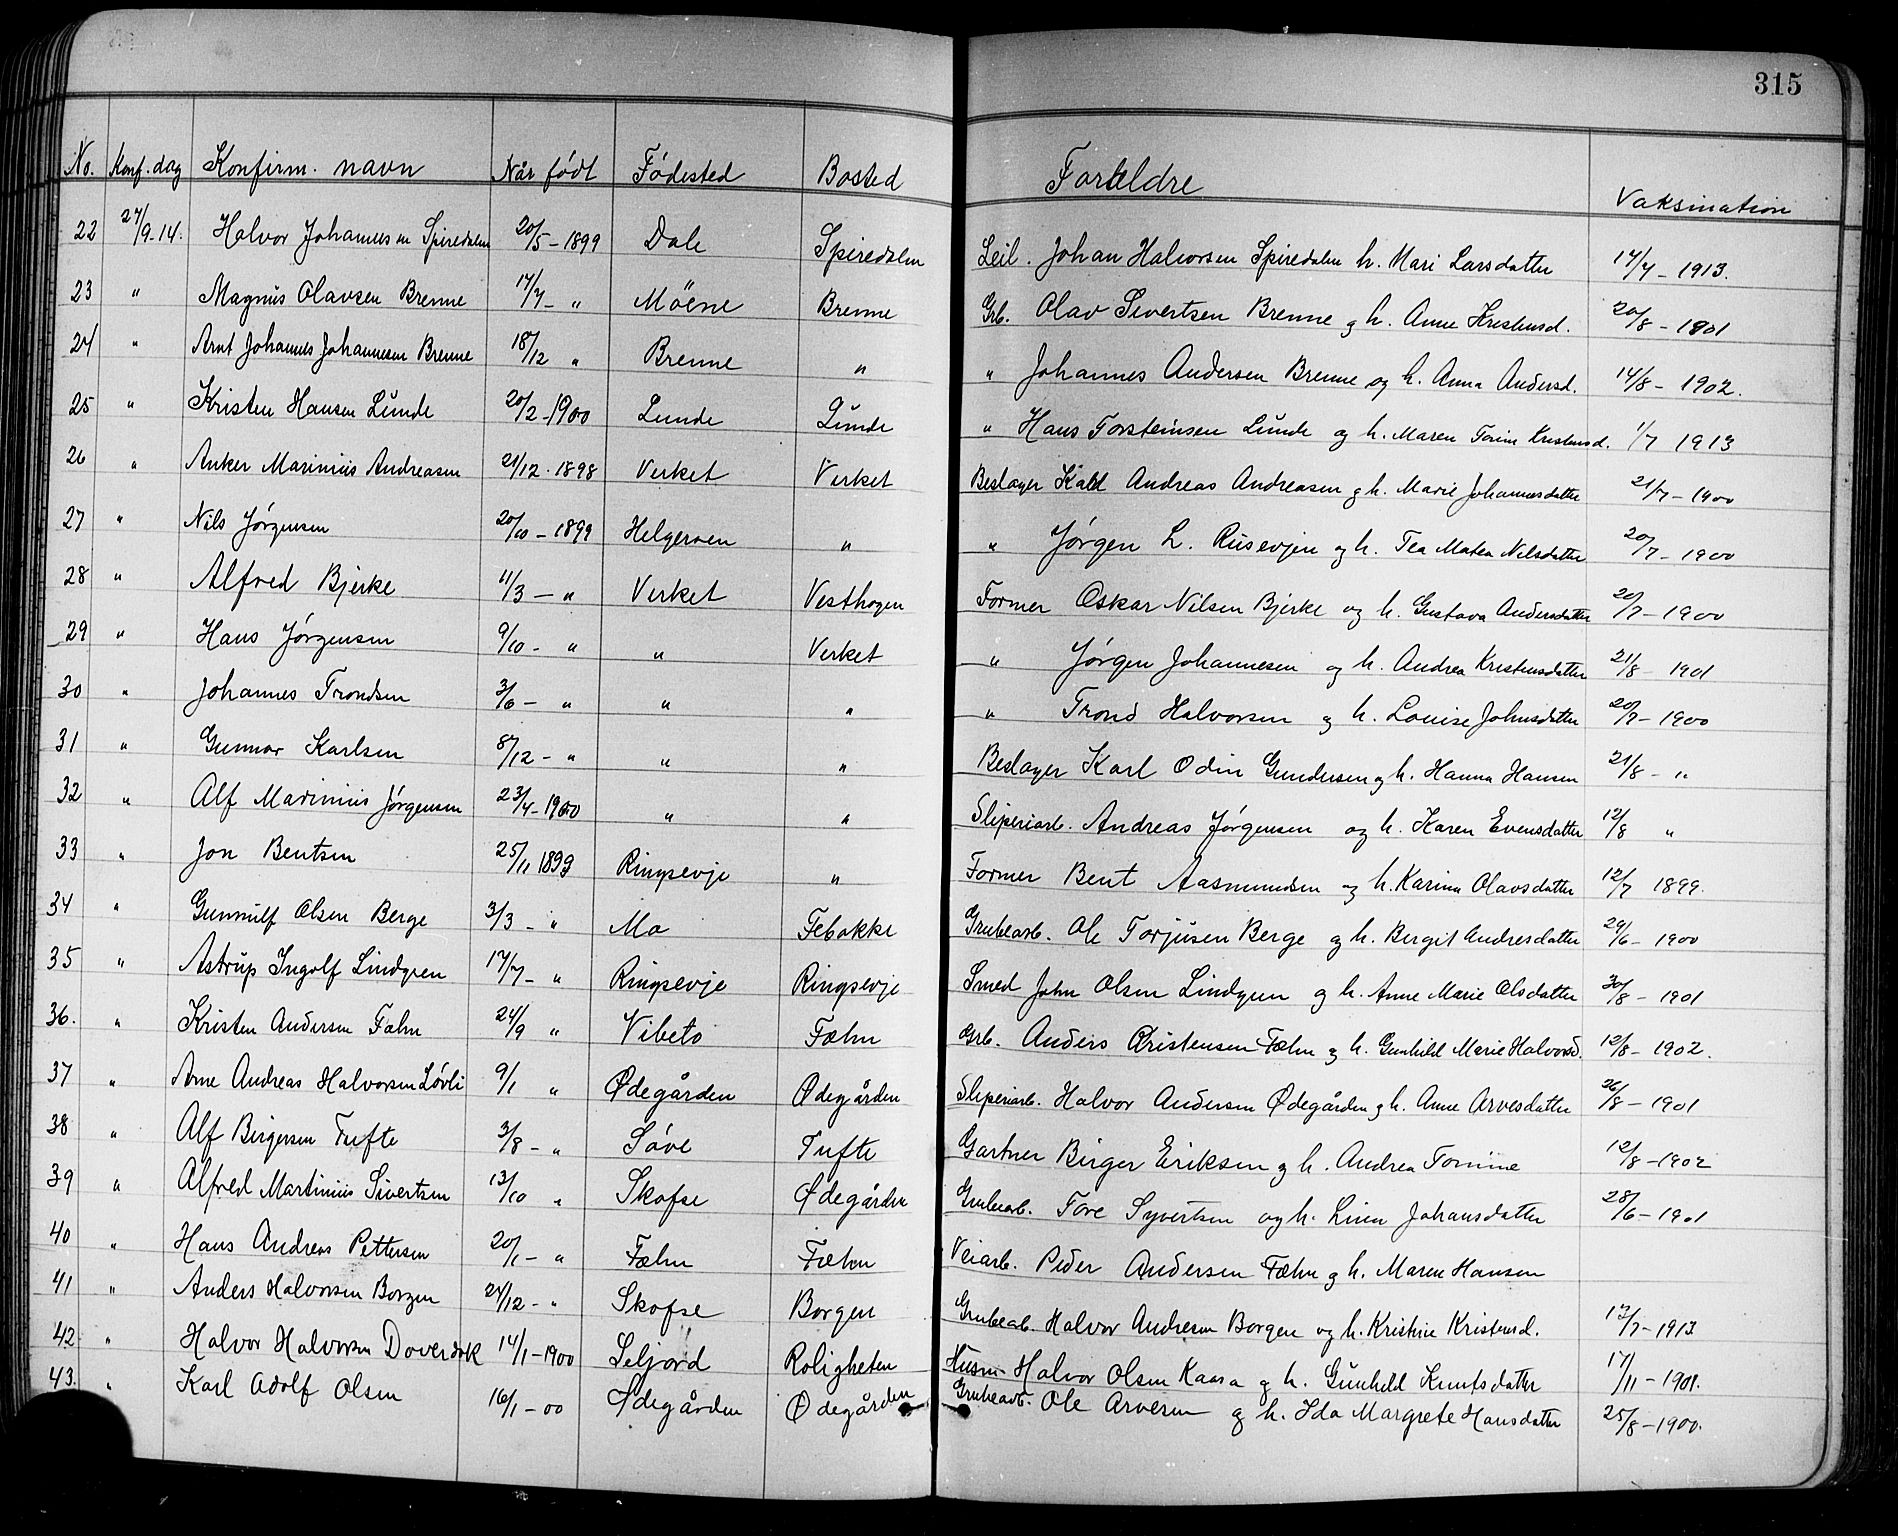 315
No. Konf. dag Konfirm. navn Når født Fødested Bosted Foreldre Vaksination
22 27/9-14. Halvor Johannessen Spiredalen 20/5-1899 Dale Spiredalen Leil. Johan Halvorsen Spiredalen h. Mari Larsdatter 14/7-1913.
23 " Magnus Olavsen Brenne 17/7- " Moene Brenne Grb. Olav Sivertsen Brenne g h. Anne Kristensd. 20/8-1901
24 " Arnt Johannes Johannesen Brenne 18/12 " Brenne " " Johannes Andersen Brenne og h. Anna Andersd. 14/8-1902.
25 " Kristen Hansen Lunde 20/2-1900 Lunde Lunde " Hans Torsteinsen Lunde og h. Maren Kristensd. 1/7 1913
26 " Anker Marinius Andreasen 21/12-1898 Verket Verket Beslager Karl Andreas Andreasen g h. Marie Johannesdatter 21/7-1900
27 " Nils Jørgensen 20/10-1899 Helgeroen " " Jørgen L. Rusevjen og h. Tea Matea Nilsdatter 20/7-1900
28 " Alfred Bjerke 11/3- " Verket Vesthagen Former Oskar Nilsen Bjerke og h. Gustava Andersdatter 20/7-1900
29 " Hans Jørgensen 9/10- " " Verket " Jørgen Johannesen og h. Andrea Kristensdatter 21/8-1901
30 " Johannes Trondsen 3/6- " " " " Trond Halvorsen og h. Louise Johnsdatter 20/7-1900
31 " Gunnar Karlsen 8/12- " " " Beslager Karl Odin Gundersen og h. Hanna Hansen 21/8- "
32 " Alf Marinius Jørgensen 23/4-1900 " " Sliperiarb. Andreas Jørgensen og h. Karen Evensdatter 12/8 "
33 " Jon Bentsen 25/11 1899 Ringsevje " Former Bent Aasmundsen og h. Karine Olavsdatter 12/7 1899.
34 " Gunnulf Olsen Berge 3/3- " Mo Febakke Grubearb. Ole Torjusen Berge og h. Bergit Andresdatter 29/6-1900
35 " Astrup Ingolf Lindgren 17/7- " Ringsevje Ringsevje Smed John Olsen Lindgren g h. Anne Marie Olsdatter 30/8-1901
36. " Kristen Andersen Fæhn 24/9 " Vibeto Fæhn Grb. Anders Kristensen Fæhn og h. Gunhild Marie Halvorsd. 12/8-1902.
37 " Arne Andreas Halvorsen Løvli 9/1 " Ødegården Ødegården Sliperiarb. Halvor Andersen Ødegården g h. Anne Arvesdatter 26/8-1901
38 " Alf Birgersen Tufte 3/8- " Søve Tufte Gartner Birger Eriksen g h. Andrea Tomine 12/8-1902
39 " Alfred Martinius Sivertsen 13/10 " Skofse Ødegården Grubearb. Tore Syvertsen og h. Linea Johansdatter 28/6-1901
40 " Hans Andreas Pettersen 20/1- " Fæhn Fæhn Veiarb. Peder Andersen Fæhn g h. Maren Hansen
41 " Anders Halvorsen Borgen 24/12- " Skofse Borgen Grubearb. Halvor Andresen Borgen og h. Kristine Kristensd. 17/7-1913
42 " Halvor Halvorsen Doverdok 14/1-1900 Seljord Roligheten Husm. Halvor Olsen Kaasa g h. Gunhild Knutsdatter 17/11-1901.
43. " Karl Adolf Olsen 16/1-00 Ødegården Ødegården Grubearb. Ole Arvesen g h. Ida Margrete Hansdatter 25/8-1900.